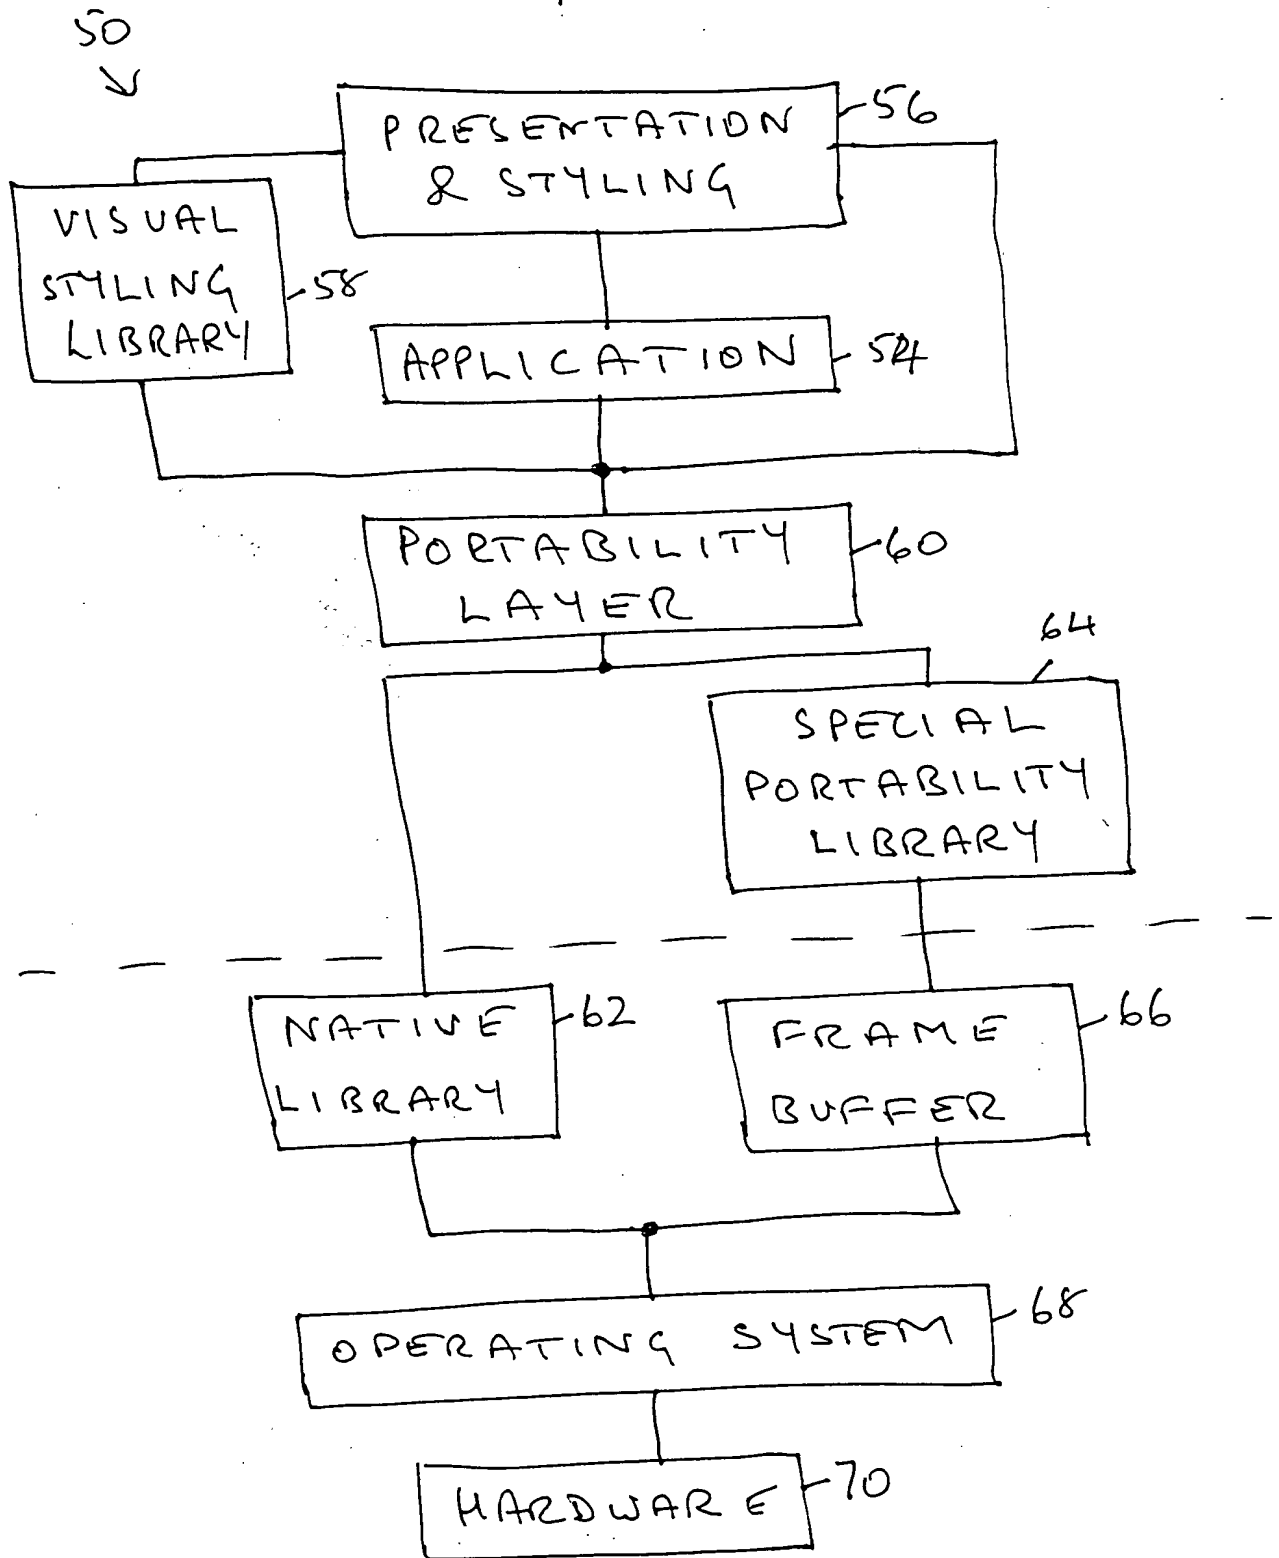 50
PRESENTATION
& STYLING
56
VISUAL
STYLING
LIBRARY
58
APPLICATION
54
PORTABILITY
LAYER
60
64
SPECIAL
PORTABILITY
LIBRARY
NATIVE
LIBRARY
62
FRAME
BUFFER
66
OPERATING SYSTEM
68
HARDWARE
70